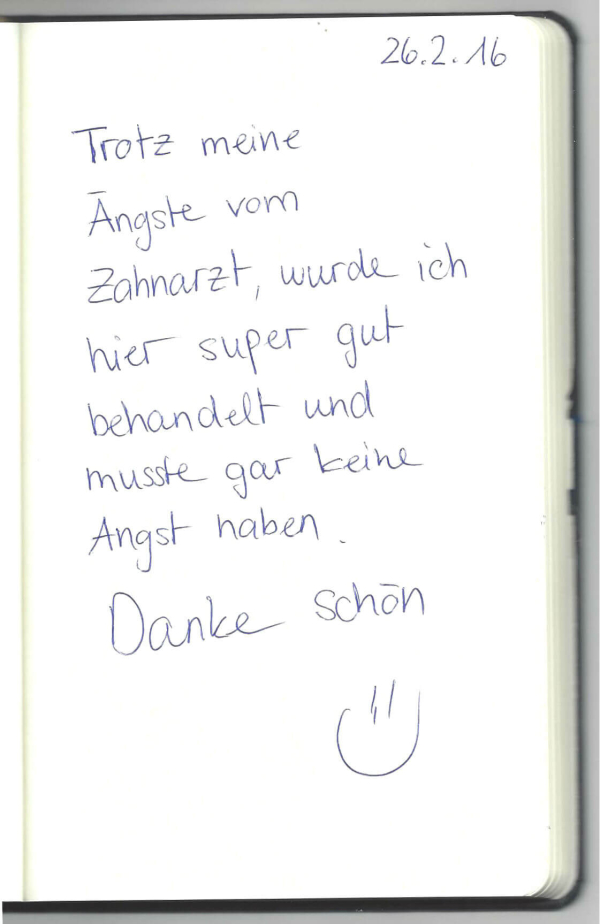 26.2.16
Trotz meine
Ängste vom
Zahnarzt, wurde ich
hier super gut
behandelt und
musste gar keine
Angst haben.
Danke schön